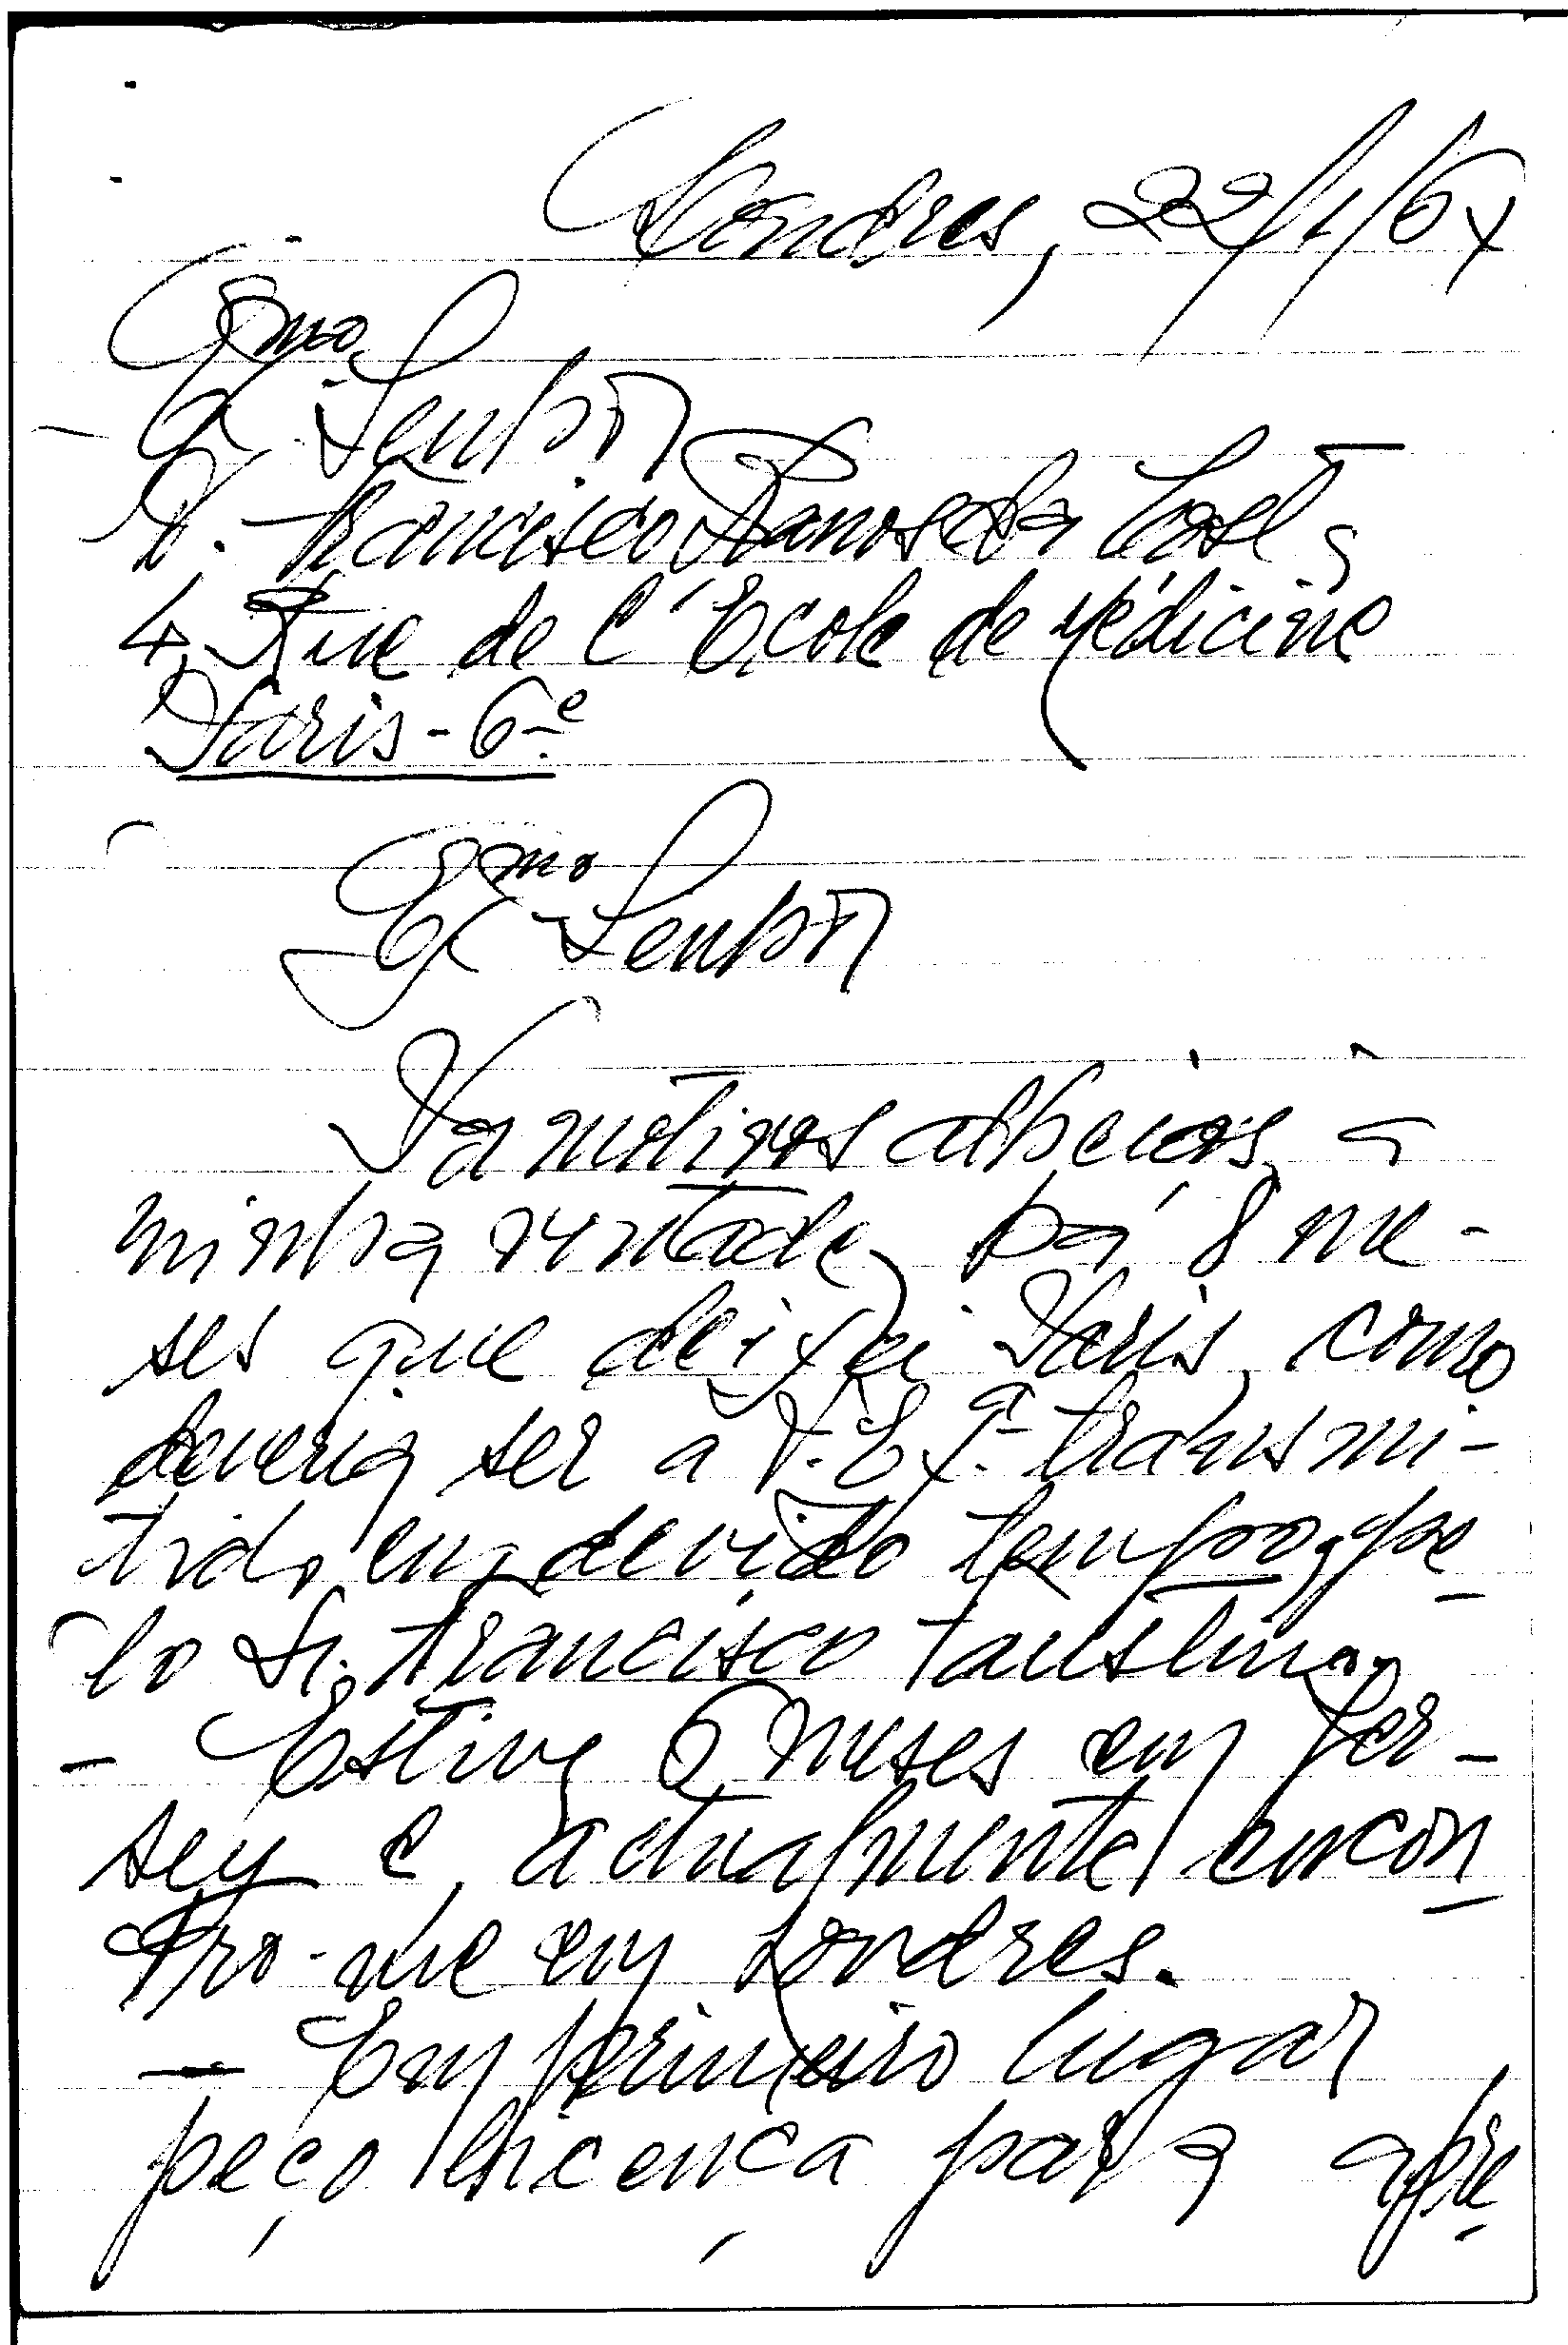 Londres, 22/1/67
Exmo Senhor
D. Francisco Ramos da Costa
4, Rue de l'École de Médicine
Paris - 6e.
Exmo Senhor
Por motivos alheios à
minha vontade, há 8 me-
ses que deixei Paris, como
deveria ser a V. Exª. transmi-
tido em devido tempo, pe-
lo Sr. Francisco Faustino.
- Estive 6 meses em Jer-
sey e, actualmente, encon-
tro-me em Londres.
- Em primeiro lugar
peço licença para apre-